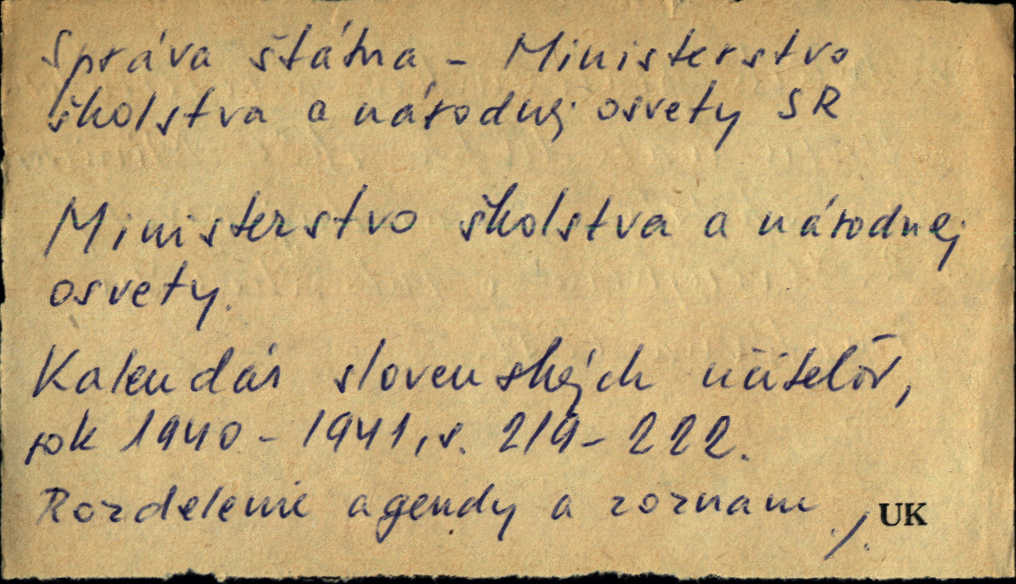 Správa štátna - Ministerstvo
školstva a národnej osvety SR
Ministerstvo školstva a národnej
osvety.
Kalendár slovenských učiteľov,
rok 1940 - 1941, s. 219 - 222.
Rozdelenie agendy a zoznam ./. UK